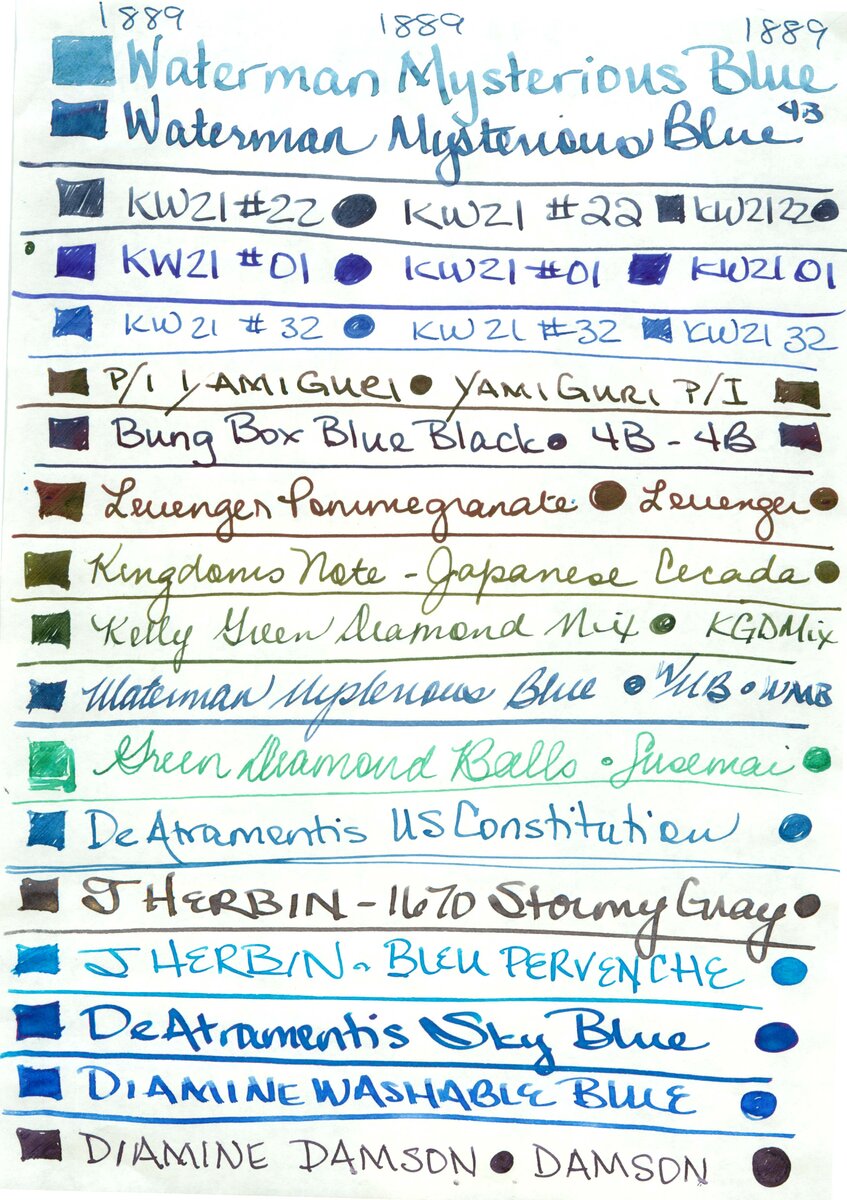 1889 1889 1889
Waterman Mysterious Blue
Waterman Mysterious Blue 4B
KWZI #22 KWZI #22 KWZI 22
KWZI #01 KWZI #01 KWZI 01
KWZI #32 KWZI #32 KWZI 32
P/I YAMIGURI YAMIGURI P/I
Bung Box Blue Black 4B - 4B
Levenger Pommegranate Levenger
Kingdoms Note - Japanese Cecada
Kelly Green Diamond Mix KGDMix
Waterman Mysterious Blue WMB WMB
Green Diamond Balls Susemai
De Atramentis US Constitution
J HERBIN - 1670 Stormy Gray
J HERBIN - BLEU PERVENCHE
De Atramentis Sky Blue
DIAMINE WASHABLE BLUE
DIAMINE DAMSON DAMSON